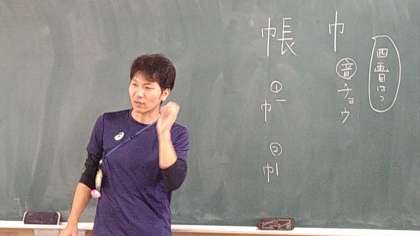 四画目は
巾
音チョウ
帳
①
巾
②